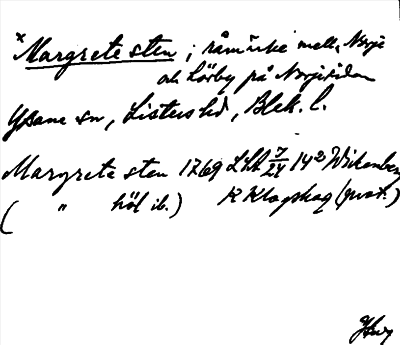 × Margrete sten, i råmärke mell. Norje
och Lörby på Norjesidan
Ysane sn, Listers hd, Blek. l.
Margrete sten 1769 Lht 7/24 142 Wickenberg
( " höl ib.) K Klagskag (quar.)